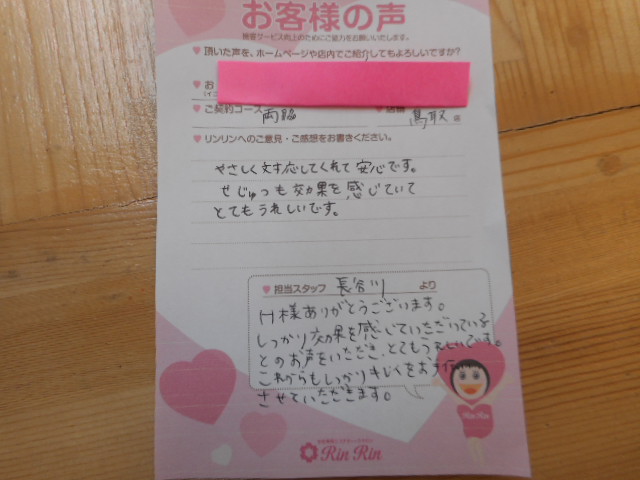 お客様の声
接客サービス向上のためにご協力をお願いいたします。
頂いた声を、ホームページや店内でご紹介してもよろしいですか?
お
ご契約コース 両脇 店舗 鳥取 店
リンリンへのご意見・ご感想をお書きください。
やさしく対応してくれて安心です。
せじゅつも効果を感じていて
とてもうれしいです。
担当スタッフ 長谷川 より
H様ありがとうございます。
しっかり効果を感じていただいている
とのお声をいただき、とてもうれしいです。
これからもしっかりキレイをお手伝い
させていただきます。
Rin Rin
Rin Rin